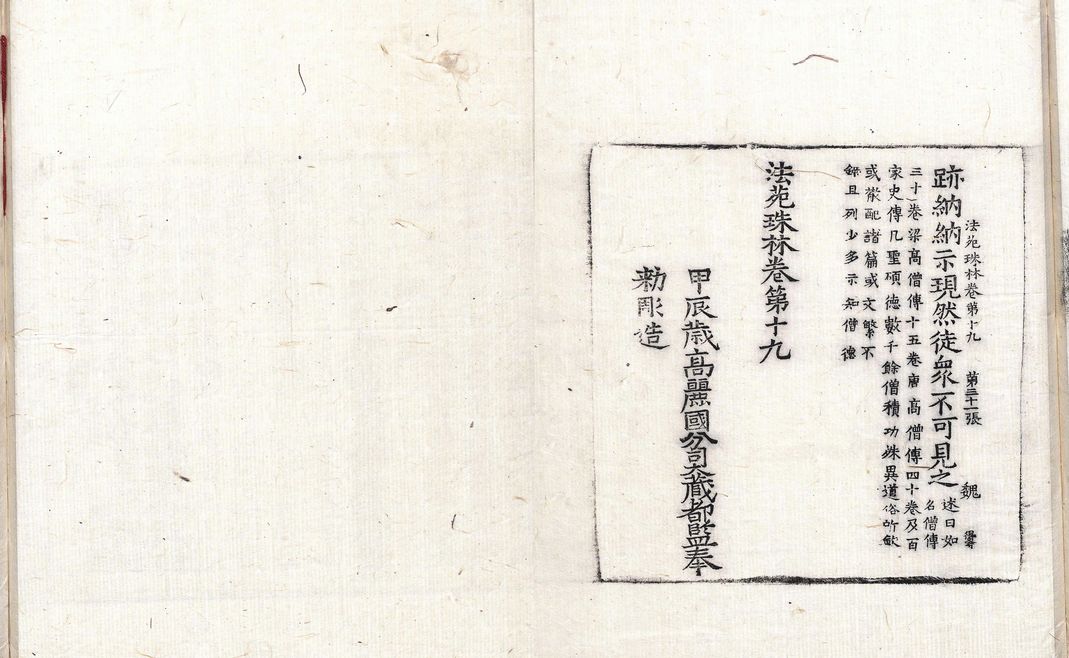 法苑珠林卷第十九 第三十一張 魏
跡納納示現然徒衆不可見之 述曰如
名僧傳
三十卷梁高僧傳十五卷唐高僧傳四十卷及百
家史傳凡聖碩德數千餘僧積功殊異道俗所欽
或散配諸篇或文繁不
録且列少多示知僧德
法苑珠林卷第十九
甲辰歳高麗國分司大藏都監奉
勑彫造